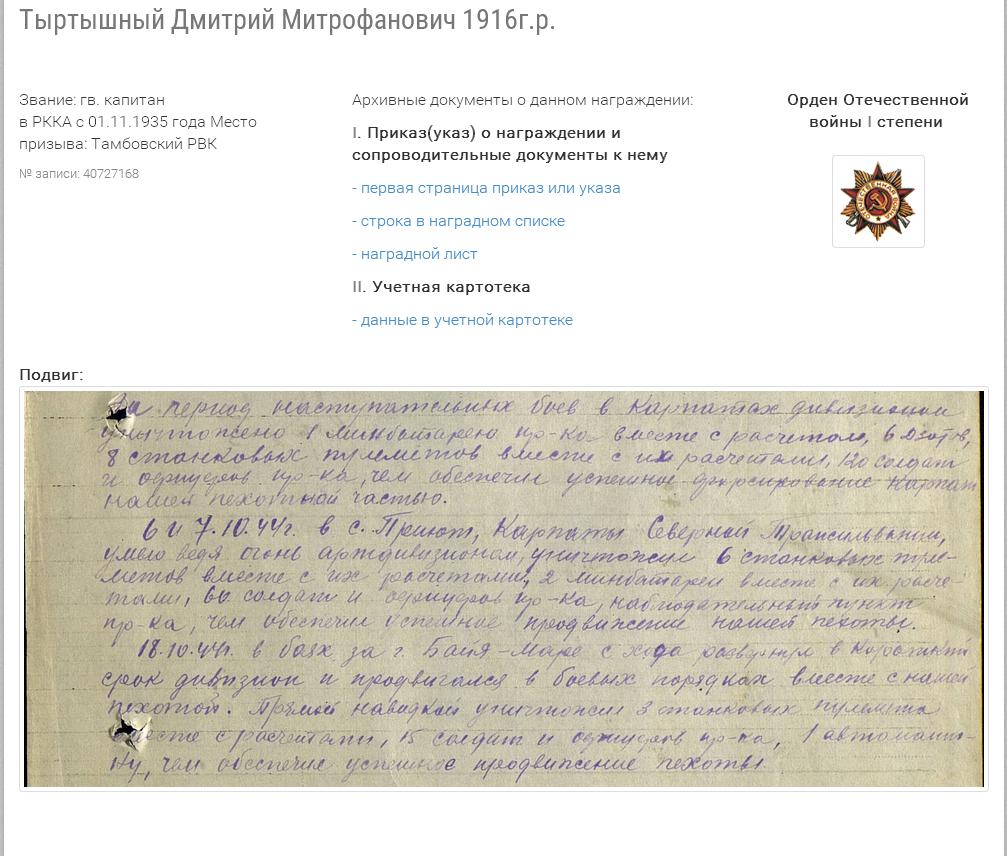 Тыртышный Дмитрий Митрофанович 1916г.р.
Звание: гв. капитан
в РККА с 01.11.1935 года Место
призыва: Тамбовский РВК
№ записи: 40727168
Архивные документы о данном награждении:
I. Приказ(указ) о награждении и
сопроводительные документы к нему
- первая страница приказ или указа
- строка в наградном списке
- наградной лист
II. Учетная картотека
- данные в учетной картотеке
Орден Отечественной
войны I степени
ОТЕЧЕСТВЕННАЯ ВОЙНА
Подвиг:
За период наступательных боев в Карпатах дивизионом
уничтожено 1 минбатарею пр-ка вместе с расчетом, 6 дзотов,
8 станковых пулеметов вместе с их расчетами, 120 солдат
и офицеров пр-ка, чем обеспечен успешное форсирование Карпат
нашей пехотной частью.
6 и 7.10.44г. в с. Приют, Карпаты Северной Трансильвании,
умело ведя огонь артдивизионом, уничтожил 6 станковых пуле-
метов вместе с их расчетами, 2 минбатареи вместе с их расче-
тами, 60 солдат и офицеров пр-ка, наблюдательный пункт
пр-ка, чем обеспечил успешное продвижение нашей пехоты.
18.10.44г. в боях за г. Байя-Маре с хода развернул в короткий
срок дивизион и продвигался в боевых порядках вместе с нашей
пехотой. Прямой наводкой уничтожил 3 станковых пулемета
вместе с расчетами, 15 солдат и офицеров пр-ка, 1 автомаши-
ну, чем обеспечил успешное продвижение пехоты.